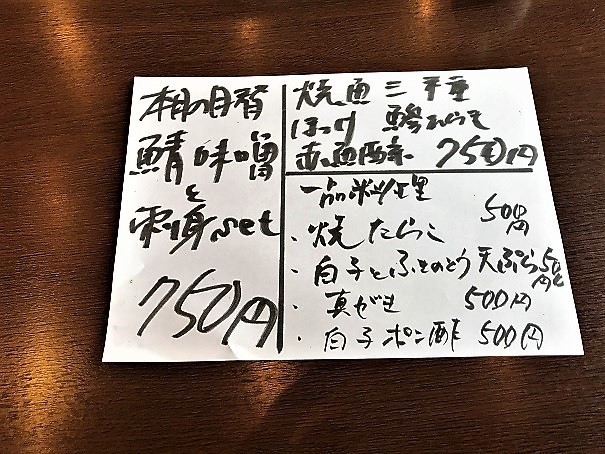 本日の日替
鯖味噌
と
刺身set
750円
焼魚三種
ほっけ 鯵ひらき
赤魚西京 750円
一品料理
・焼たらこ 500円
・白子とふきのとう天ぷら 500円
・真がき 500円
・白子ポン酢 500円